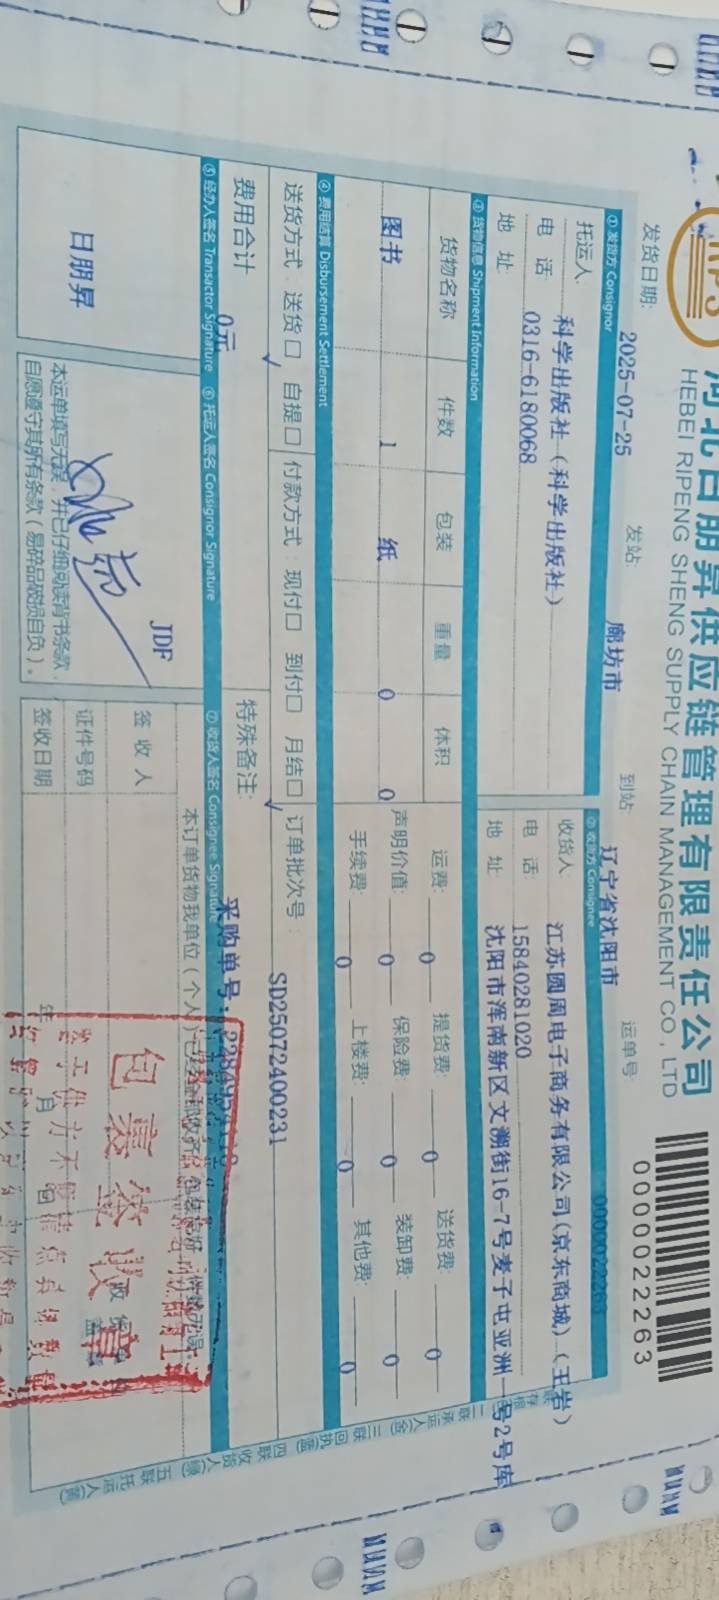 河北日朋昇供应链管理有限责任公司
HEBEI RIPENG SHENG SUPPLY CHAIN MANAGEMENT CO., LTD
0000022263
发货日期: 2025-07-25 发站: 廊坊市 到站: 辽宁省沈阳市 运单号: 0000022263
① 发货方 Consignor ② 收货方 Consignee
托运人: 科学出版社（科学出版社） 收货人: 江苏圆周电子商务有限公司(京东商城)（王岩）
电 话: 0316-6180068 电 话: 15840281020
地 址: 地 址: 沈阳市浑南新区文溯街16-7号麦子屯亚洲一号2号库
③ 货物信息 Shipment Information
货物名称 件数 包装 重量 体积 运费: 0 提货费: 0 送货费: 0
图书 1 纸 0 0 声明价值: 0 保险费: 0 装卸费: 0
手续费: 0 上楼费: 0 其他费: 0
④ 费用结算 Disbursement Settlement
送货方式: 送货□√ 自提□ 付款方式: 现付□ 到付□ 月结□√ 订单批次号: SD25072400231
费用合计 0元 特殊备注: 采购单号:
⑤ 经办人签名 Transactor Signature ⑥ 托运人签名 Consignor Signature ⑦ 收货人签名 Consignee Signature
日朋昇
JDF
本运单填写无误，并已仔细阅读背书条款，
自愿遵守其所有条款（易碎品破损自负）。
本订单货物我单位（个人）
签 收 人
证件号码
签收日期 年 月
包裹签收章
二联承运人
三联回执
四联收货人
五联托运人